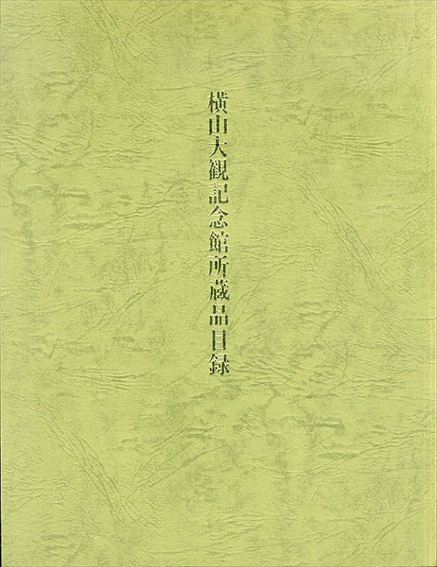 横山大観記念館所蔵品目録